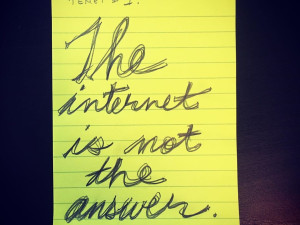 TENET # 1.
The
internet
is not
the
answer.